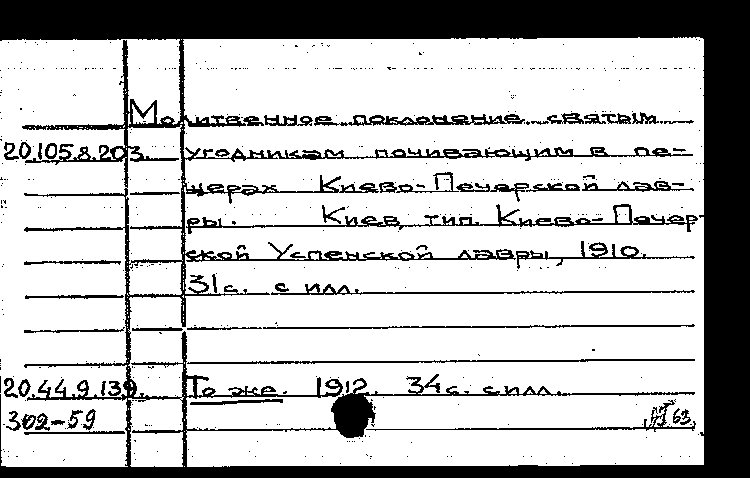 Молитвенное поклонение святым
20.105.8.203. угодникам почивающим в пе-
щерах Киево-Печерской лав-
ры. Киев, тип. Киево-Печер-
ской Успенской лавры, 1910.
31с. с илл.
20.44.9.139. То же. 1912. 34с. с илл.
302-59